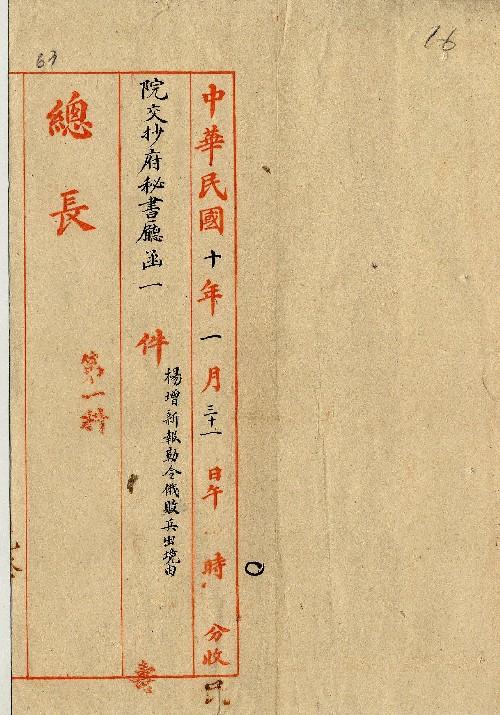 16
63
中華民國十年一月三十一日午 時 分收
院交抄府秘書廳函一件
楊增新報勒令俄敗兵出境由
總長
第一科